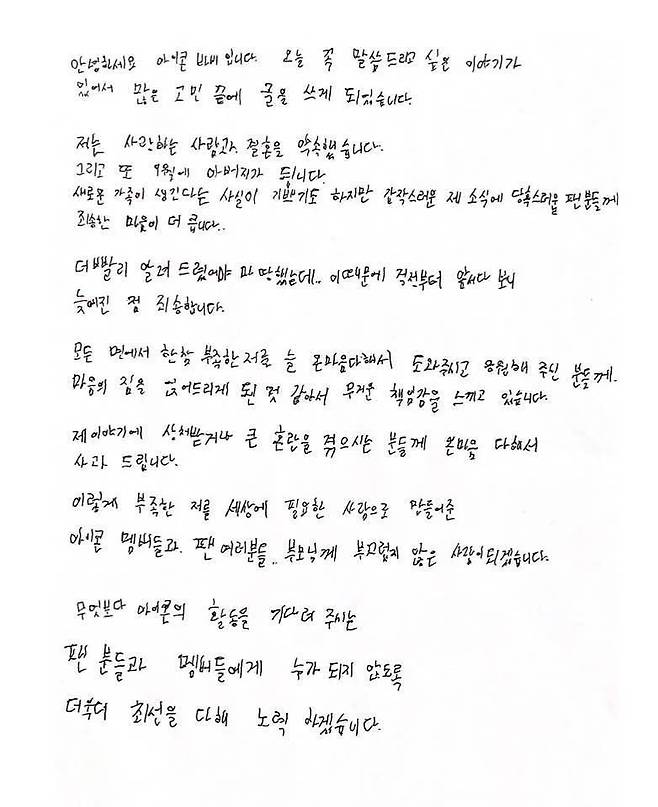 안녕하세요 아이콘 바비 입니다. 오늘 꼭 말씀드리고 싶은 이야기가
있어서 많은 고민 끝에 글을 쓰게 되었습니다.
저는 사랑하는 사람과 결혼을 약속했습니다.
그리고 또 9월에 아버지가 됩니다.
새로운 가족이 생긴다는 사실이 기쁘기도 하지만 갑작스러운 제 소식에 당혹스러울 팬분들께
죄송한 마음이 더 큽니다..
더 빨리 알려 드렸어야 마땅했는데.. 이 때문에 걱정부터 앞서다 보니
늦어진 점 죄송합니다.
모든 면에서 한참 부족한 저를 늘 온마음다해서 도와주시고 응원해 주신 분들께..
마음의 짐을 얹어드리게 된 것 같아서 무거운 책임감을 느끼고 있습니다.
제 이야기에 상처받거나 큰 혼란을 겪으시는 분들께 온마음 다해서
사과 드립니다.
이렇게 부족한 저를 세상에 필요한 사람으로 만들어준
아이콘 멤버들과. 팬 여러분들.. 부모님께 부끄럽지 않은 사람이되겠습니다.
무엇보다 아이콘의 활동을 기다려 주시는
팬 분들과 멤버들에게 누가 되지 않도록
더욱더 최선을 다해 노력 하겠습니다.